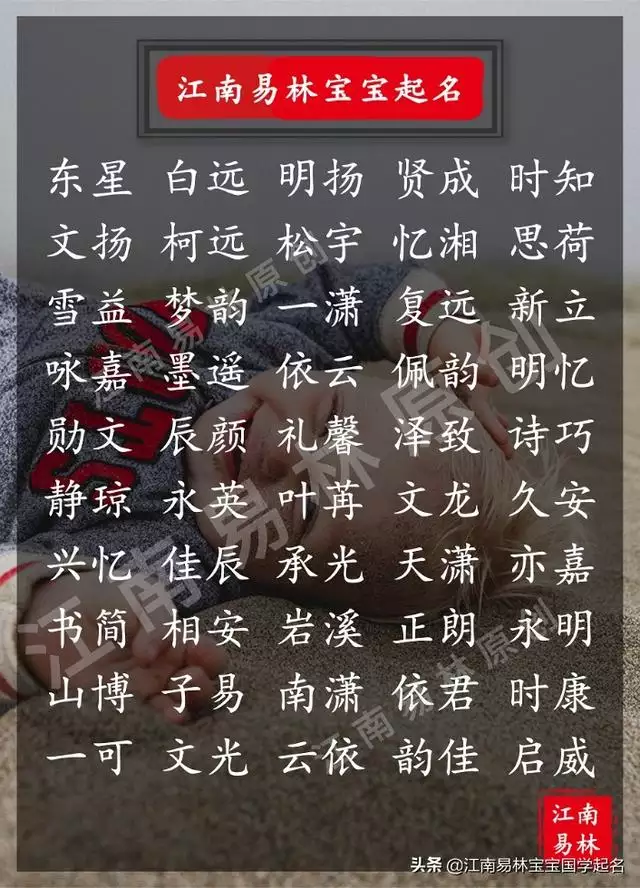 江南易林宝宝起名
东星 白远 明扬 贤成 时知
文扬 柯远 松宇 忆湘 思荷
雪益 梦韵 一潇 复远 新立
咏嘉 墨遥 依云 佩韵 明忆
勋文 辰颜 礼馨 泽致 诗巧
静琼 永英 叶苒 文龙 久安
兴忆 佳辰 承光 天潇 亦嘉
书简 相安 岩溪 正朗 永明
山博 子易 南潇 依君 时康
一可 文光 云依 韵佳 启威
江南易林原创
江南
易林
头条 @江南易林宝宝国学起名